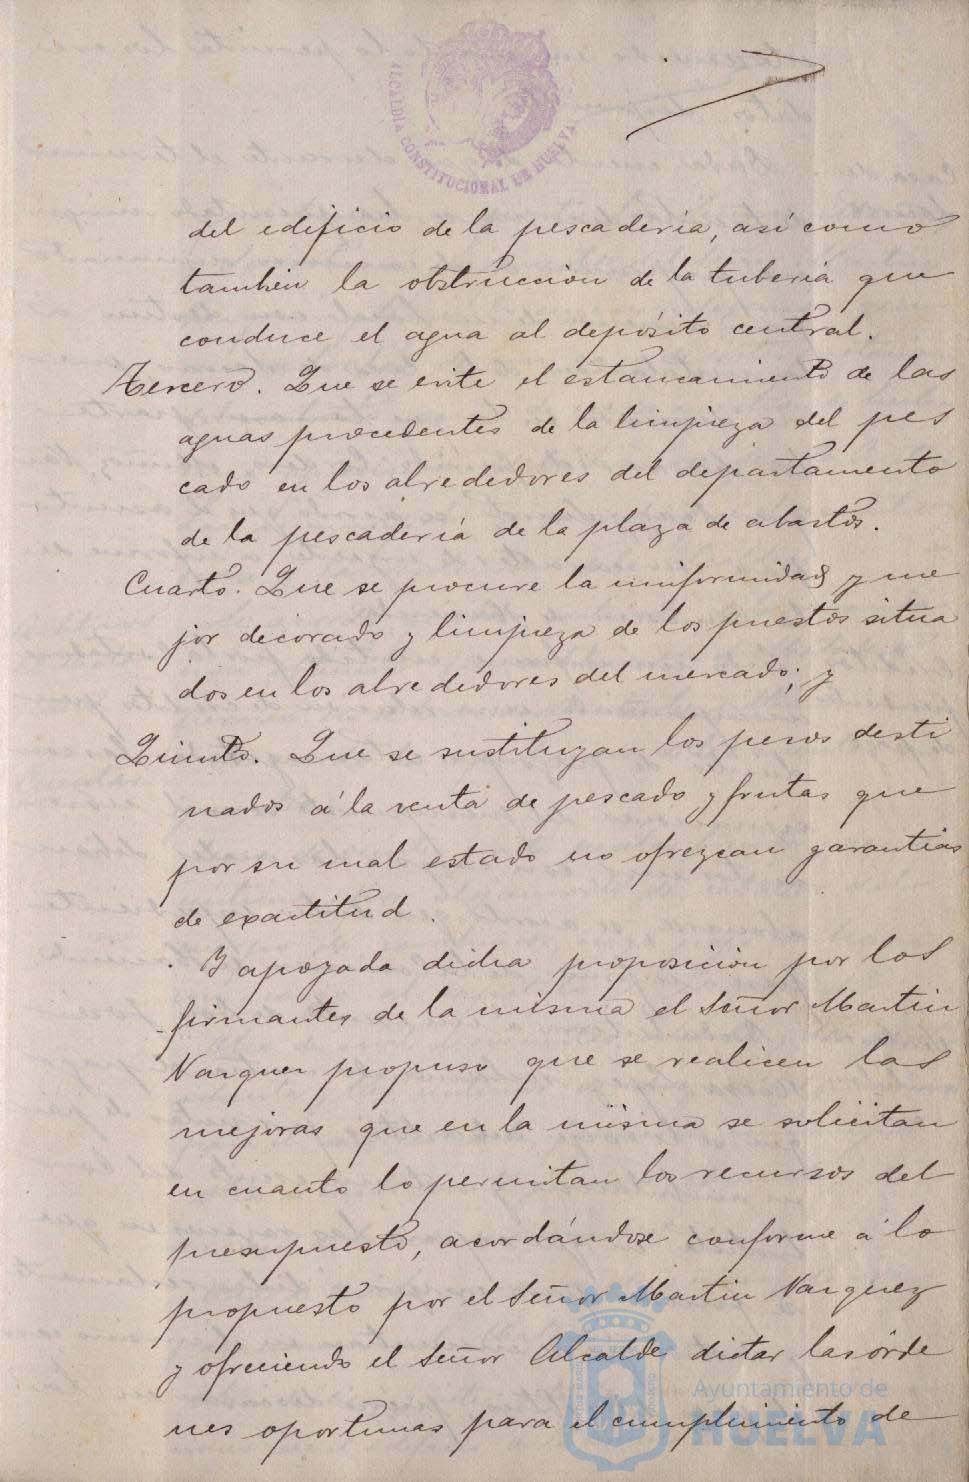 ALCALDIA CONSTITUCIONAL DE HUELVA
del edificio de la pescaderia, así como
tambien la obstruccion de la tuberia que
conduce el agua al depósito central.
Tercero. Que se evite el estancamiento de las
aguas procedentes de la limpieza del pes
cado en los alrededores del departamento
de la pescaderia de la plaza de abastos.
Cuarto. Que se procure la uniformidad y me
jor decorado y limpieza de los puestos situa
dos en los alrededores del mercado; y
Quinto. Que se sustituyan los pesos desti
nados á la venta de pescado y frutas que
por su mal estado no ofrezcan garantias
de exactitud.
Y apoyada dicha proposicion por los
firmantes de la misma el Señor Martin
Vazquez propuso que se realicen las
mejoras que en la misma se solicitan
en cuanto lo permitan los recursos del
presupuesto, acordándose conforme á lo
propuesto por el Señor Martin Vazquez
y ofreciendo el Señor Alcalde dictar las órde
nes oportunas para el cumplimiento de
Ayuntamiento de
HUELVA